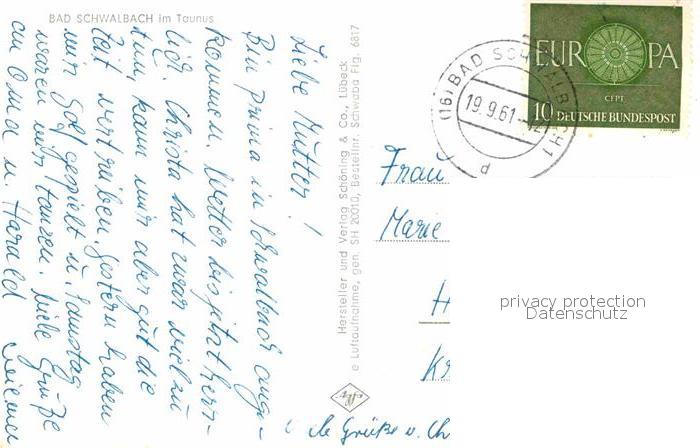 BAD SCHWALBACH im Taunus
Liebe Mutter!
Bin prima in Schwalbach ange-
kommen. Wetter bis jetzt herr-
lich. Christa hat zwar viel zu
tun, kann mir aber gut die
Zeit vertreiben. Gestern haben
wir Golf gespielt u. Samstag
waren wir tanzen. Viele Grüße
an Oma u. Harald
Hersteller und Verlag Schöning & Co., Lübeck
© Luftaufnahme, gen. SH 20010, Bestellnr. Schwaba Fig. 6817
Grüße v. Ch
EUROPA
CEPT
10 DEUTSCHE BUNDESPOST
(16) BAD SCHWALBACH 1
19.9.61-12
d
Frau
Marie
H
Kr
privacy protection
Datenschutz